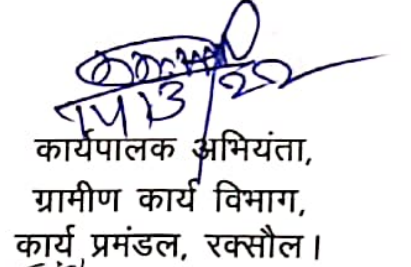 14/3/22
कार्यपालक अभियंता,
ग्रामीण कार्य विभाग,
कार्य प्रमंडल, रक्सौल।